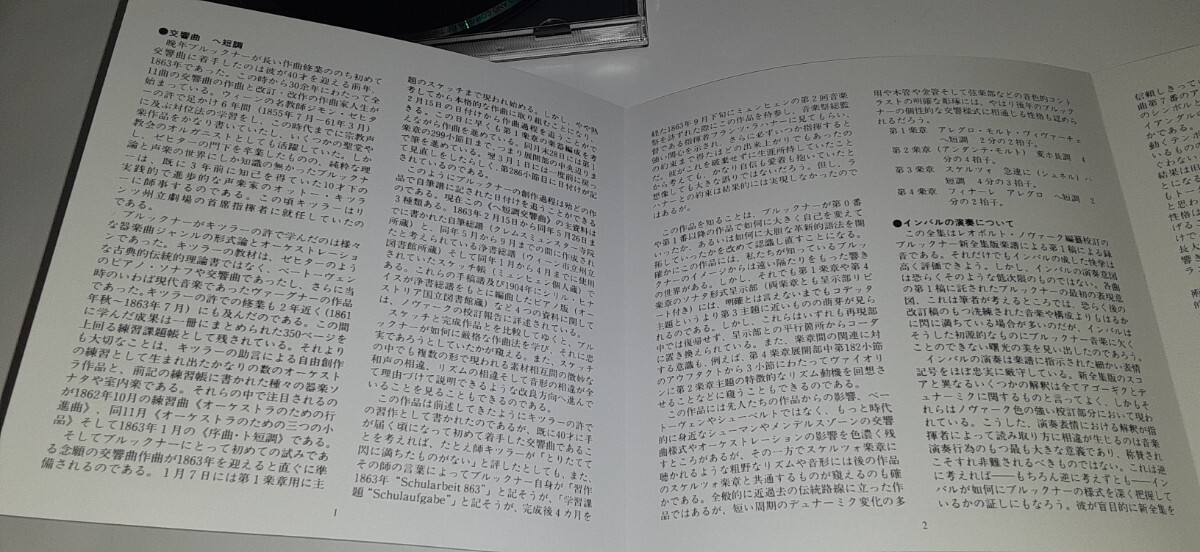 ●交響曲　ヘ短調
　晩年ブルックナーが長い作曲修業ののち初めて
交響曲に着手したのは彼が40才を迎える前年、
1863年であった。この時から30余年にわたって全
11曲の交響曲の作曲と改訂・改作の作曲家人生が
始まっている。ウィーンの名教師ジモン・ゼヒタ
ーの許で足かけ6年間（1855年7月―61年3月）
に及ぶ対位法の学習をし、この時代までに宗教声
楽作品をかなり書いていたし、いくつかの聖堂や
教会のオルガニストとしても活躍していた。しか
し、ゼヒターの門下を卒業したものの、純粋な理
論と声楽の世界にしか知識の無かったブルックナ
ーは、既に3年前に知己を得ていた10才下の
実践的で進歩的な声楽家のオットー・キツラ
ーに師事するのである。この頃キツラーはリ
ンツ州立劇場の首席指揮者に就任していたの
である。
　ブルックナーがキツラーの許で学んだのは様々
な器楽曲ジャンルの形式論とオーケストレーショ
ンであった。キツラーの教材は、ゼヒターのよう
な古典的伝統的理論書ではなく、ベートーヴェン
のピアノ・ソナフや交響曲であったし、さらに当
時のいわば現代音楽であったヴァーグナーの作品
であった。キツラーの許での修業も2年近く（1861
年秋～1863年7月）にも及んだのである。この間
に学んだ成果は一冊にまとめられた350ページを
上回る練習課題帳として残されている。それより
も大切なことは、キツラーの助言による自由創作
の練習として生まれ出たかなりの数のオーケスト
ラ作品と、前記の練習帳に書かれた種々の器楽ソ
ナタや室内楽である。それらの中で注目されるの
が1862年10月の練習曲《オーケストラのための行
進曲》、同11月《オーケストラのための三つの小
品》そして1863年1月の《序曲・ト短調》である。
　そしてブルックナーにとって初めての試みであ
る念願の交響曲作曲が1863年を迎えると直ぐに準
備されるのである。1月7日には第1楽章用に主
題のスケッチまで現われ始める。しかし、やや熟
考してから本格的な作曲に取り組むことになり、
2月15日の日付から作曲過程を追うことができ
る。この日に早くも第1楽章の楽器編成を考
えながら作曲を進めている。同月末28日には第1
楽章の299小節目まで、つまり展開部の中央辺りま
で筆を進めている。翌3月1日には一度前に戻っ
て見直しをしたらしく、第286小節目に日付が記
のである。
　このようにブルックナーの創作過程は殆どの作
品で自筆譜に記された日付を追うことができるの
である。現在この《ヘ短調交響曲》の主資料は
3種類ある。1863年2月15日から同年5月26日ま
でに書かれた自筆総譜（クレムスミュンスター寺院
所蔵）と、同年5月から9月までの間に作成され
たと考えられている浄書総譜（ウィーン市立州立
図書館所蔵）そして同年1月から4月までに使用
されたスケッチ帳（ミュンヒェン個人蔵）で
ある。これらの手稿譜及び1904年にシリル・ヒナ
イスが浄書総譜をもとに編曲したピアノ版（オー
ストリア国立図書館蔵）など4つの資料に関して
は、ノヴァークの校訂報告に詳述されている。
スケッチと完成作品とを比較してゆくと、ブル
ックナーが如何に厳格な作曲法を学び、それに忠
実であろうとしていたかが窺える。また、スケッチ
の中でも複数の形で現われる素材相互間の微妙な
和声の相違、リズムの相違そして音形の相違が全
て理由づけて説明できるような改良方向へ進んで
いることを見ることもできるのである。
　この作品は前述してきたようにキツラーの許で
の習作として書かれたのであるが、既に40才に手
が届く頃になって初めて着手した交響曲であるこ
とを考えれば、たとえ師キツラーが「とりたてて
閃に満ちたものがない」と評したとしても、また、
その師の言葉によってブルックナー自身が「習作
1863年“Schularbeit 863”」と記そうが、「学習課
題“Schulaufgabe”」と記そうが、完成後4カ月を
1
経た1863年9月下旬にミュンヒェンの第2回音楽
祭を訪ずれた際にこの作品を持参し、音楽祭総監
督である指揮者フランツ・ラハナーに見てもらい、
強い関心を示され、さらに必ずいつか指揮すると
の約束まで得たほどの出来上がりでもあったの
だ。彼がこれを破棄せずに生涯所持していたこと
から考えても、かなり自信も愛着も抱いていたと
想像しても大きな誤りではないだろう。但し、ラ
ハナーとの約束は結果的には実現しなかったので
はあるが。
　この作品を知ることは、ブルックナーが第0番
や第1番以降の作品で如何に大きく自己を変えて
いったか、あるいは如何に大胆な革新的語法を開
拓していったかを改めて認識し直すことになる。
確かにこの作品には、私たちが知っているブルッ
クナーのイメージからは遠い隔たりをもった響き
の世界がある。しかし、それでも第1楽章や第4
楽章のソナタ形式呈示部（両楽章とも呈示部リピ
ート付き）には、明確とは言えないまでもコデッタ
主題というより第3主題に近いものの萌芽が見ら
れるのである。しかし、これらはいずれも再現部
中では復帰せず、呈示部との平行箇所からコーダ
に置き換えられている。また、楽章間の関連に対
する意識も、例えば、第4楽章展開部中第182小節
のアウフタクトから3小節にわたってヴァイオリ
ンに第2楽章主題の特徴的なリズム動機を回想さ
せることなどに窺うこともできるのである。
　この作品には先人たちの作品からの影響、ベー
トーヴェンやシューベルトではなく、もっと時代
的に身近なシューマンやメンデルスゾーンの交響
曲様式やオーケストレーションの影響を色濃く残
すところがあるが、その一方でスケルツォ楽章に
聴かれるような粗野なリズムや音形には後の作品
のスケルツォ楽章と共通するものが窺えるのも確
かである。全般的に近過去の伝統路線に立った作
品ではあるが、短い周期のデュナーミク変化の多
用や木管や金管そして弦楽部などの音色的コント
ラストの明確な彫琢には、やはり後年のブルック
ナーの個性的な交響様式に相通じる性格も認めら
れるだろう。
第1楽章　アレグロ・モルト・ヴィヴァーチェ
ヘ短調　2分の2拍子。
第2楽章　（アンダンテ・モルト）　変ホ長調　4
分の4拍子。
第3楽章　スケルツォ　急速に（シュネル）ハ
短調　4分の3拍子。
第4楽章　フィナーレ　アレグロ　ヘ短調　2
分の2拍子。
●インバルの演奏について
　この全集はレオポルト・ノヴァーク編纂校訂の
ブルックナー新全集版楽譜による第1稿による録
音である。それだけでもインバルの成した快挙は
高く評価できよう。しかし、インバルの演奏意図
は恐らくそのような低次限のものではない。各曲
の第1稿に託されたブルックナーの最初の表現意
図、これは筆者が考えるところでは、恐らく後の
改訂稿のもつ洗練された音楽や構成よりもはるか
に閃に満ちている場合が多いのだが、インバルは
そうした初源的なものにブルックナー音楽に欠く
ことのできない曙光の美を見い出したのであろう。
　インバルの演奏は楽譜に指示された細かい表情
記号をほぼ忠実に厳守している。新全集版のスコ
アと異なるいくつかの解釈は全てアゴーギクとデ
ュナーミクに関するものと言ってよく、しかもそ
れらはノヴァーク色の強い校訂部分において現わ
れている。こうした、演奏表情における解釈が指
揮者によって読み取り方に相違が生じるのは音楽
演奏行為のもつ最も大きな意義であり、称賛され
こそすれ非難されるべきものではない。これは逆
に考えれば――もちろん逆に考えずとも――イン
バルが如何にブルックナーの様式を深く把握して
いるかの証しにもなろう。彼が盲目的に新全集を
2
信頼しきって
曲第7番のア